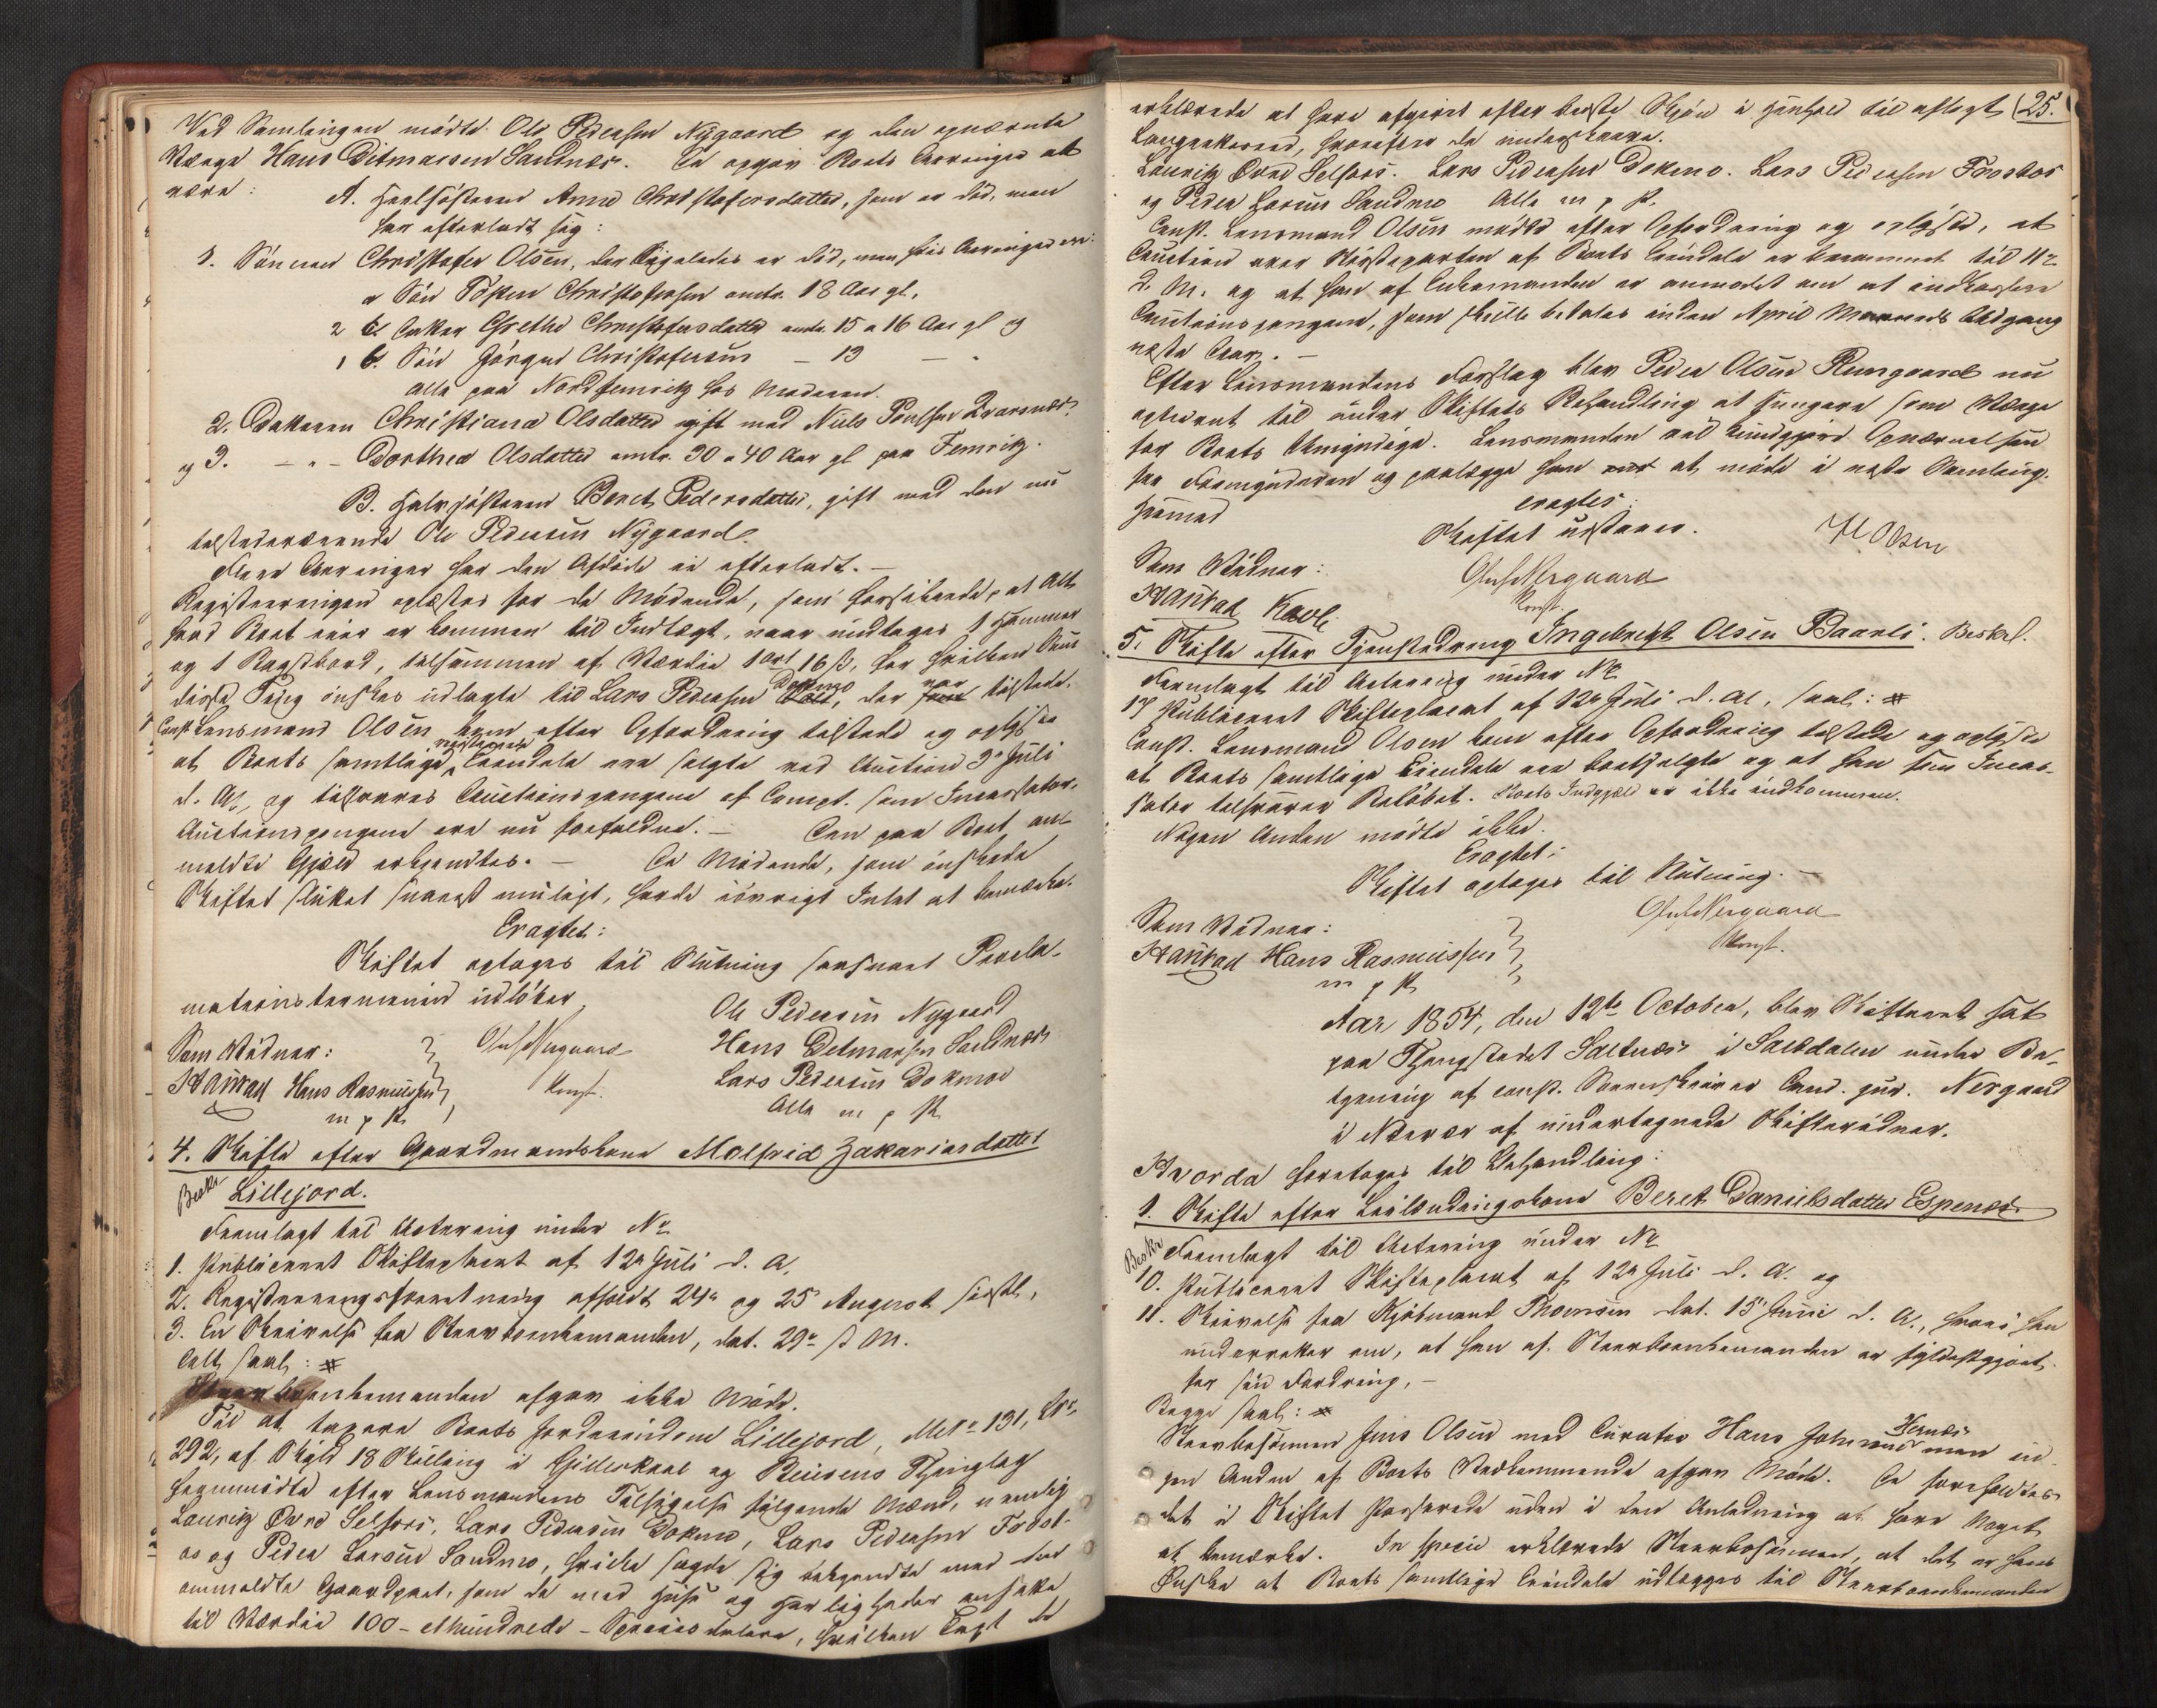 Ved Samlingen mödte Ole Pedersen Nygaard og den opnævnte
Værge Hans Ditmarsen Sandnes. De opgav Boets Arvinger at
være: A. Helsösteren Anne Christofersdatter, som er död, men
har efterladt sig:
1. Sönnen Christofer Olsen, der ligeledes er död, men hvis Arvinger ere:
a Sön Christofersen omtr. 18 Aar gl.
2 b. Datter Grethe Christofersdatter omtr. 15 a 16 Aar gl og
1 b. Sön Jörgen Christofersen – 13 – "
alle paa Nordfemris hos Moderen.
2. Datteren Christiana Olsdatter gift med Niels Poulsen
og 3. – " – Dorthea Olsdatter omtr. 30 a 40 Aar gl paa Femris.
B. Halvsösteren Beret Pedersdatter, gift med den nu
tilstedeværende Ole Pedersen Nygaard.
Flere Arvinger har den Afdöde ei efterladt. –
Registreringen oplæstes for de Mödende, som forsikrede, at Alt
hvad Boet eier er kommen til Indtægt, naar undtages 1 Hammer
og 1 Bagstbord, tilsammen af Værdie 1 ort 16 ß, for hvilken Sum
disse Ting önskes udlagte til Lars Pedersen Dokmo, der var tilstede.
Const. Lensmand Olsen kom efter Opfordring tilstede og oplyste
at Boets samtlige Eiendele ere solgte ved Auction 3de Juli
d. A., og tilsvares Auctionspengene af Compt. som Incassator.
Auctionspengene ere nu forfaldne. – Den paa Boet an-
meldte Gjæld erkjendtes. – De Mödende, som önskede
Skiftet sluttet snarest muligt, havde iövrigt Intet at bemærke.
Eragtet:
Skiftet optages til Slutning saasnart Procla-
mationsterminen udlöber
Ole Pedersen Nygaard
Som Vidner: Nergaard Hans Detmarsen Sandnes
Hans Rasmussen Const. Lars Pedersen Dokmo
m p P Alle m p P
4. Skifte efter Gaardmandskone Molfrid Zakariasdatter
Beskr Lillejord.
Fremlagt til Actering under No
1. Publiceret Skifteplacat af 12te Juli d. A.
2. Registreringsforretning afholdt 24de og 25de August sidstl.,
3. En Skrivelse fra Sterboenkemanden, dat. 29de s. M.
Alt saal: #
Sterboenkemanden afgav ikke Möde.
Til at taxere Boets Jordeiendom Lillejord, Mtr. No 131, Lb. No
292, af Skyld 18 Skilling i Gilleskaal og Beierens Thinglag
fremmödte efter Lensmandens Tilsigelse fölgende Mænd, nemlig
Lauritz Selfors, Lars Pedersen Dokmo, Lars Pedersen Frost-
os og Peder Larsen Sandmo, hvilke sagde sig bekjendte med den
ommeldte Gaardpart, som de med Huse og Herligheder ansatte
til Værdie 100 – Ethundrede – Speciesdaler, hvilken Taxt de
25.
erklærede at have afgivet efter bedste Skjön i Henhold til aflagt
Laugrettesed, hvorefter de underskreve.
Lauritz Selfors. Lars Pedersen Dokmo. Lars Pedersen Frostos
og Peder Larsen Sandmo Alle m p P.
Const. Lensmand Olsen mödte efter Opfordring og oplyste, at
Auction over Störsteparten af Boets Eiendele er berammet til 11te
d. M. og at han af Enkemanden er anmodet om at indkassere
Auctionspengene, som skulle betales inden April Maaneds Udgang
næste Aar. –
Efter Lensmandens Forslag blev Peder Olsen Rengaard nu
opnævnt til under Skiftets Behandling at fungere som Værge
for Boets Umyndige. Lensmanden vil kundgjöre Opnævnelsen
for Formynderen og paalægge ham at möde i næste Samling.
Hermed eragtes:
Skiftet udstaaer. H Olsen
Som Vidner: Nergaard
Const.
5. Skifte efter Tjenestedreng Ingebrigt Olsen Baarli. Beskr.
Fremlagt til Actering under No
17 Publiceret Skifteplacat af 12te Juli d. A., saal: #
Const. Lensmand Olsen kom efter Opfordring tilstede og oplyste
at Boets samtlige Eiendele ere bortsolgte og at han som Incas-
sator tilsvarer Belöbet. Boets Indgjæld er ikke indkommen.
Nogen Anden mödte ikke.
Eragtet:
Skiftet optages til Slutning. –
Som Vidner: Nergaard
Hans Rasmussen Const.
m p P
Aar 1854, den 12te October, blev Skifteret sat
paa Thingstedet Saltnes i Saltdalen under Be-
tjening af const. Sorenskriver Cand. jur. Nergaard
i Nærvær af undertegnede Skiftevidner.
Hvorda foretoges til Behandling:
1. Skifte efter Leilendingskone Beret Danielsdatter Espenes
Beskr Fremlagt til Actering under No
10. Publiceret Skifteplacat af 12te Juli d. A. og
11. Skrivelse fra Kjöbmand Thomsen dat. 15 Juni d. A., hvori han
underretter om, at han af Sterboenkemanden er fyldestgjort
for sin Fordring, –
Begge saal: #
Sterbosönnen Jens Olsen med Curator Hans Johnsen men in-
gen Anden af Boets Vedkommende afgav Möde. De foreholdtes
det i Skiftet Passerede uden i den Anledning at have Noget
at bemærke. In specie erklærede Sterbosönnen, at det er hans
Önske at Boets samtlige Eiendele udlægges til Sterboenkemanden